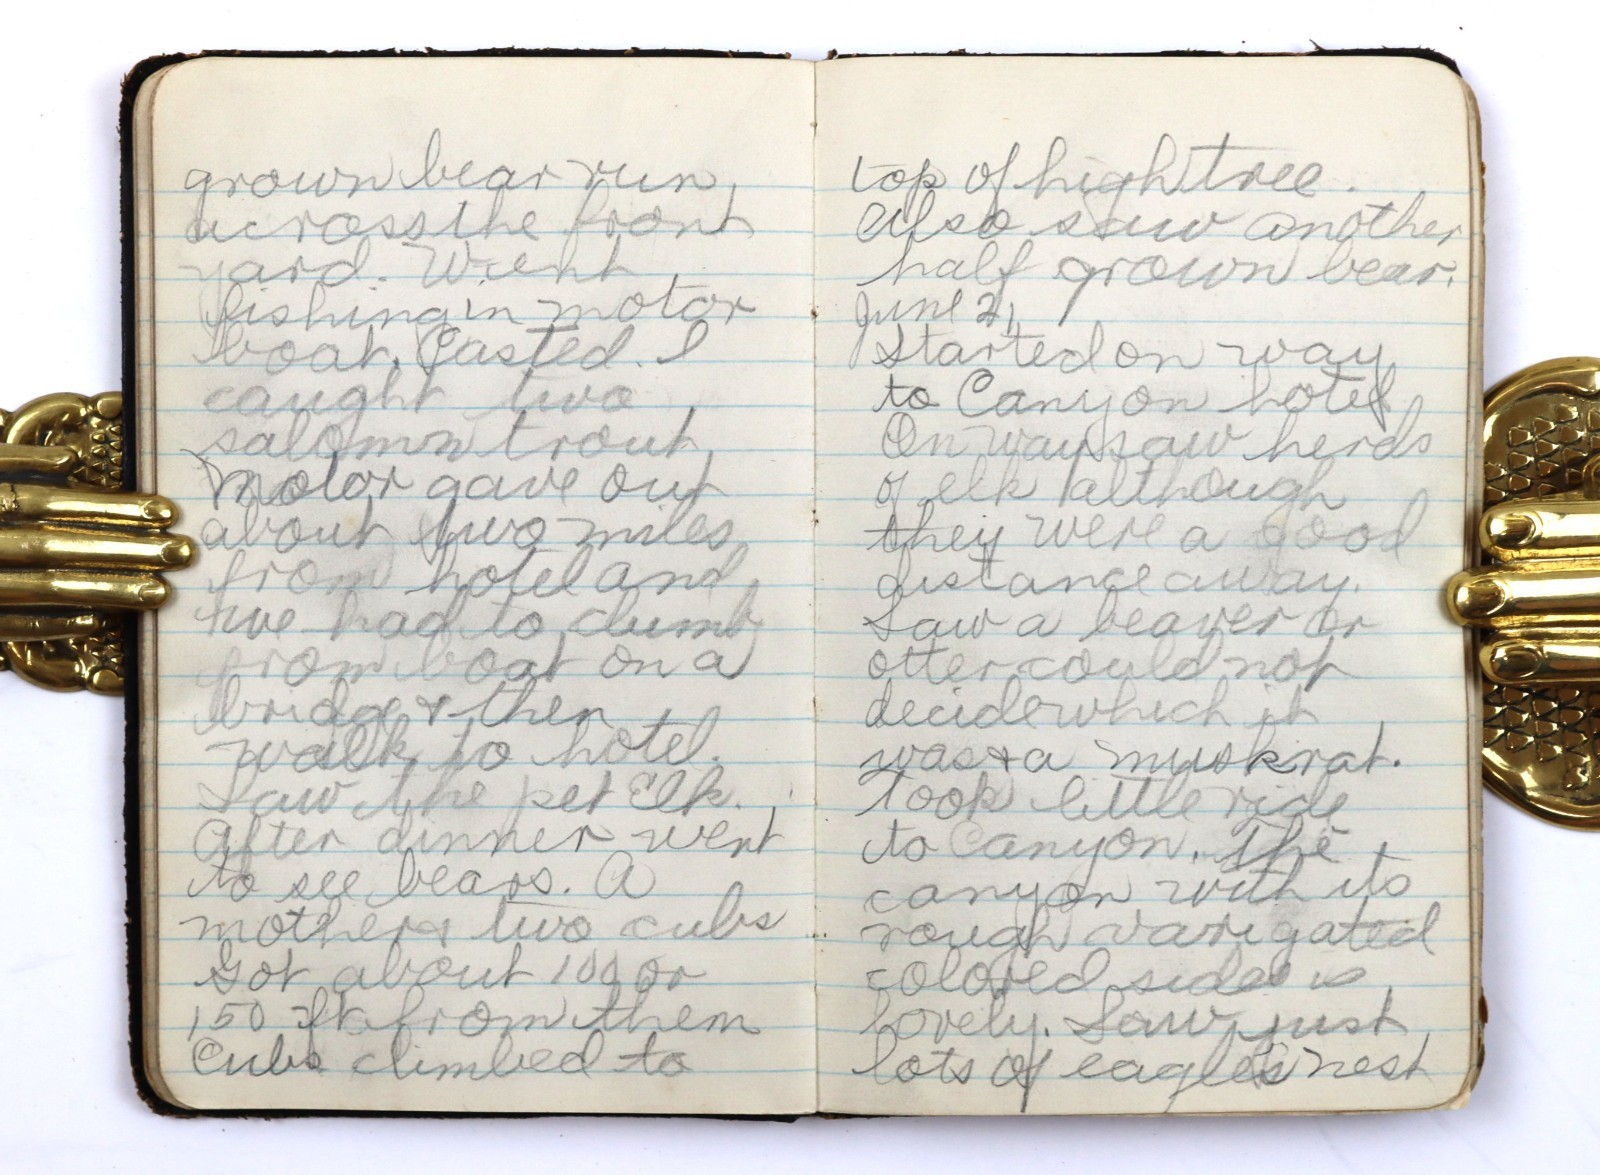 grown bear run
across the front
yard. Went
fishing in motor
boat. Casted. I
caught two
salomn trout
Motor gave out
about two miles
from hotel and
we had to climb
from boat on a
bridge & then
walk to hotel.
Saw the pet Elk.
After dinner went
to see bears. A
mother & two cubs
Got about 100 or
150 ft from them
Cubs climbed to
top of high tree.
Also saw another
half grown bear.
June 21
Started on way
to Canyon hotel
On way saw herds
of elk although
they were a good
distance away.
Saw a beaver or
otter could not
decide which it
was & a muskrat.
Took little ride
to Canyon. The
canyon with its
rough varigated
colored sides is
lovely. Saw just
lots of eagles nest